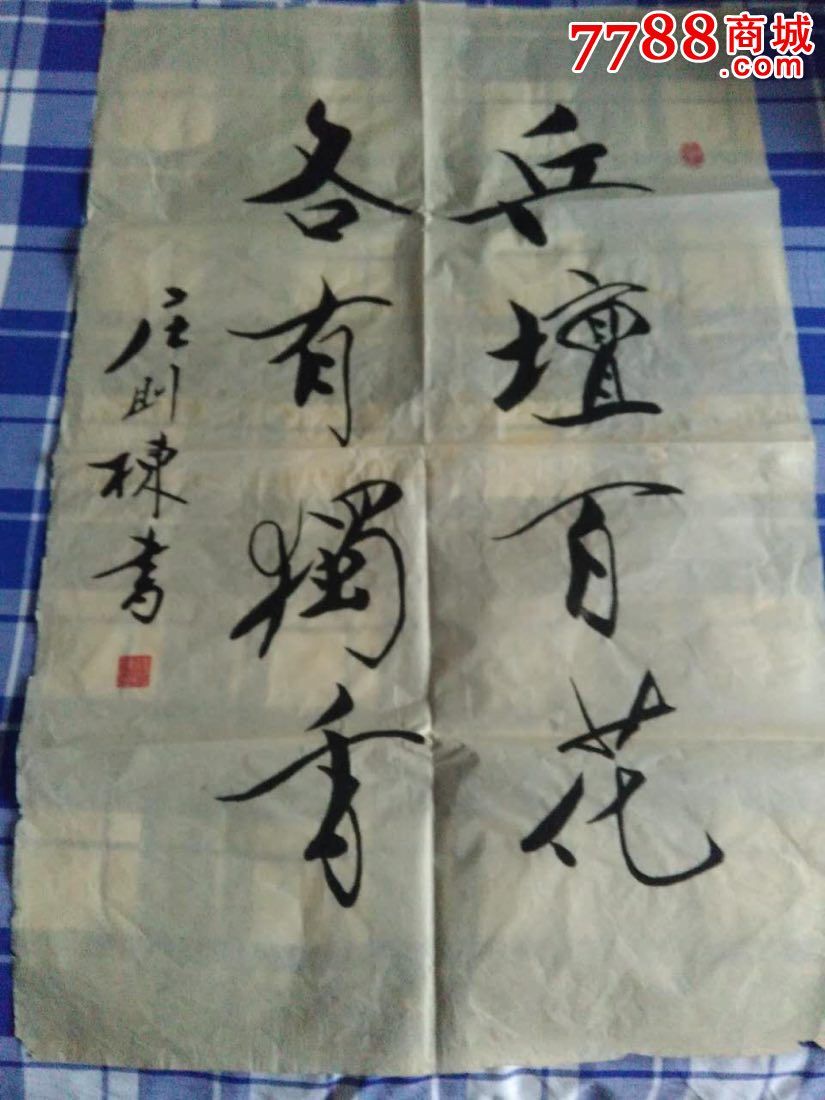 7788商城
.com
乒壇百花
各有獨香
庄则棟書